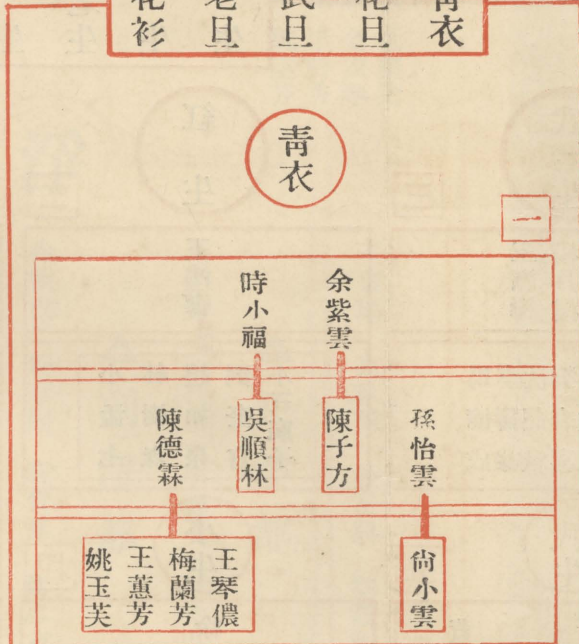 青衣
花旦
武旦
老旦
花衫
青衣
一
余紫雲
時小福
孫怡雲
陳子方
吳順林
陳德霖
尙小雲
王琴儂
梅蘭芳
王蕙芳
姚玉芙